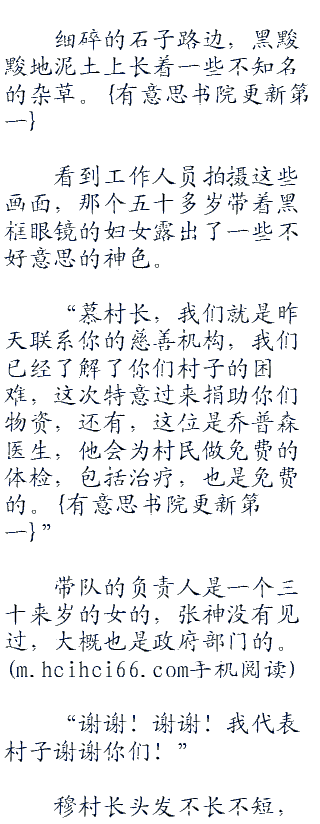 细碎的石子路边，黑黢
黢地泥土上长着一些不知名
的杂草。{有意思书院更新第
一}
看到工作人员拍摄这些
画面，那个五十多岁带着黑
框眼镜的妇女露出了一些不
好意思的神色。
“慕村长，我们就是昨
天联系你的慈善机构，我们
已经了解了你们村子的困
难，这次特意过来捐助你们
物资，还有，这位是乔普森
医生，他会为村民做免费的
体检，包括治疗，也是免费
的。{有意思书院更新第
一}”
带队的负责人是一个三
十来岁的女的，张神没有见
过，大概也是政府部门的。
(m.hcihci66.com手机阅读)
“谢谢！谢谢！我代表
村子谢谢你们！”
穆村长头发不长不短，